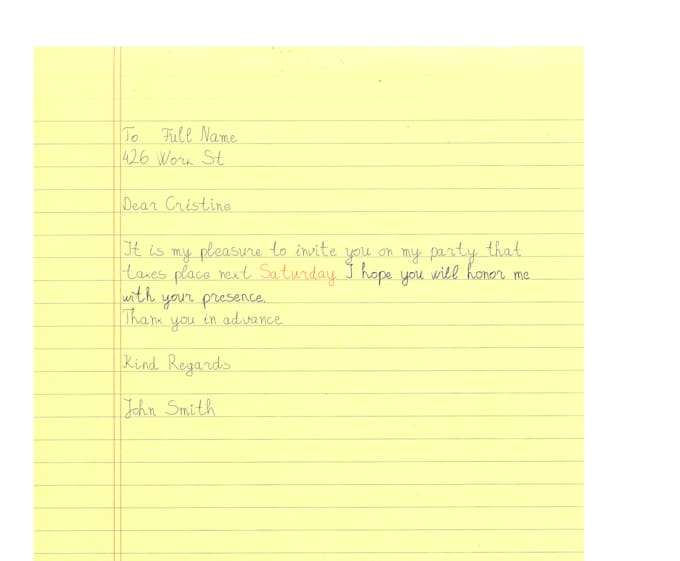 To Full Name
426 Work St
Dear Cristine
It is my pleasure to invite you on my party that
takes place next Saturday. I hope you will honor me
with your presence.
Thank you in advance
Kind Regards
John Smith